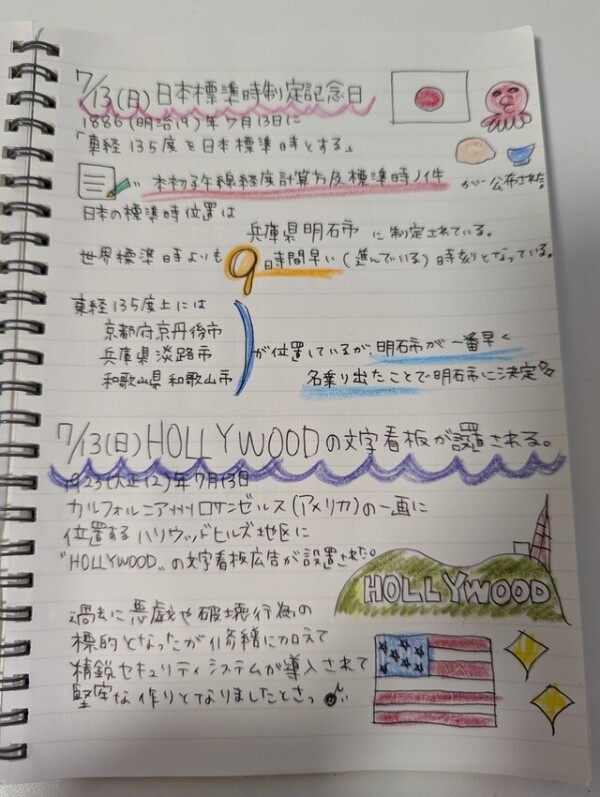 7/13(日)日本標準時制定記念日
1886(明治19)年7月13日に
「東経135度を日本標準時とする」
"本初子午線経度計算方及標準時ノ件 が公布された。
日本の標準時位置は
兵庫県明石市に制定されている。
世界標準時よりも9時間早い(進んでいる)時刻となっている。
東経135度上には
京都府京丹後市
兵庫県淡路市
和歌山県和歌山市
が位置しているが、明石市が一番早く
名乗り出たことで明石市に決定
7/13(日)HOLLYWOODの文字看板が設置される。
1923(大正12)年7月13日
カルフォルニア州ロサンゼルス(アメリカ)の一画に
位置するハリウッドヒルズ地区に
"HOLLYWOOD"の文字看板広告が設置された。
HOLLYWOOD
過去に悪戯や破壊行為の
標的となったが修繕に加えて
精鋭セキュリティシステムが導入されて
堅牢な作りとなりましたとさっ♪